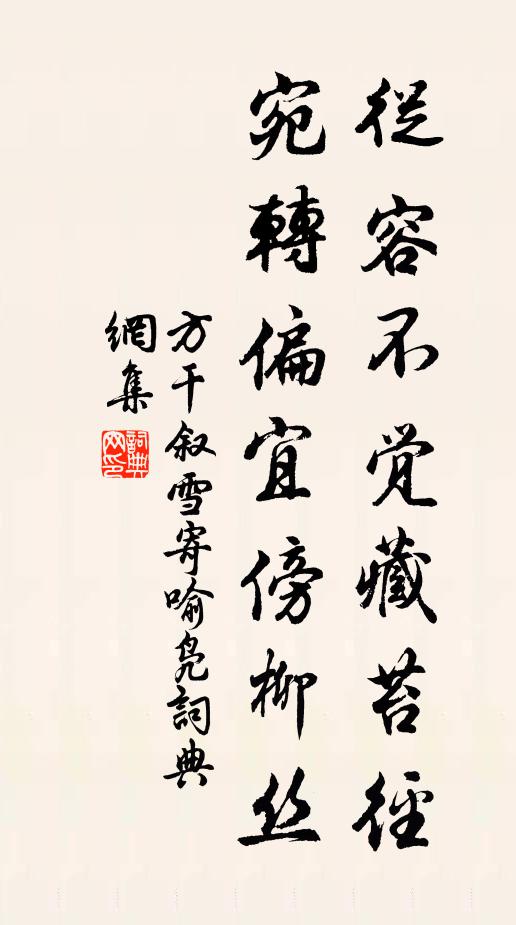 從容不覚藏苔徑
宛轉偏宜傍柳丝
方干叙雪寄喻凫詞典
網集
詞典网印